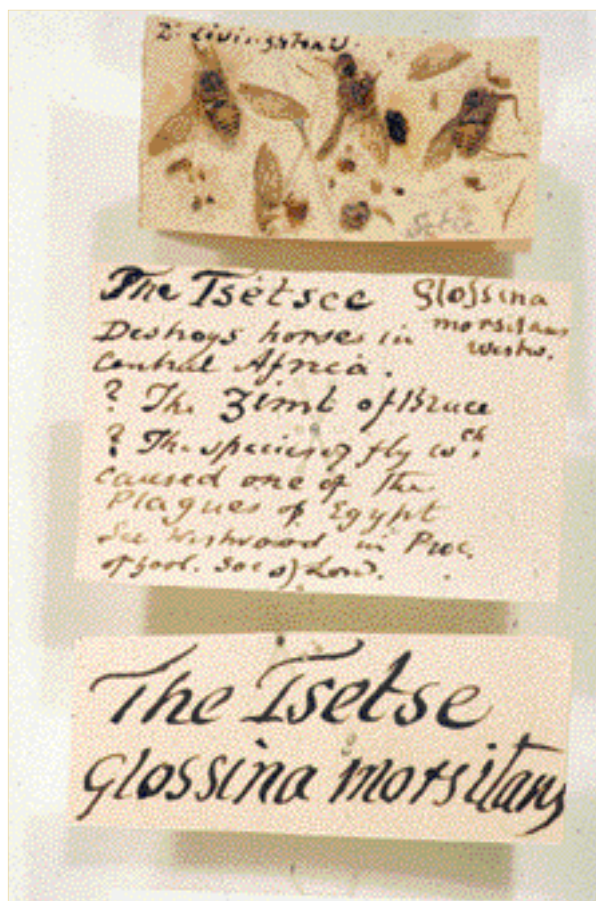 Dr. Livingstone.
Setse
The Tsétsee
Glossina
morsitans
Westw.
Destroys horses in
Central Africa.
? The Zimb of Bruce
? The species of fly wch.
caused one of the
Plagues of Egypt
See Westwood in Proc.
of Zool. Soc of Lond.
The Tsetse
Glossina morsitans